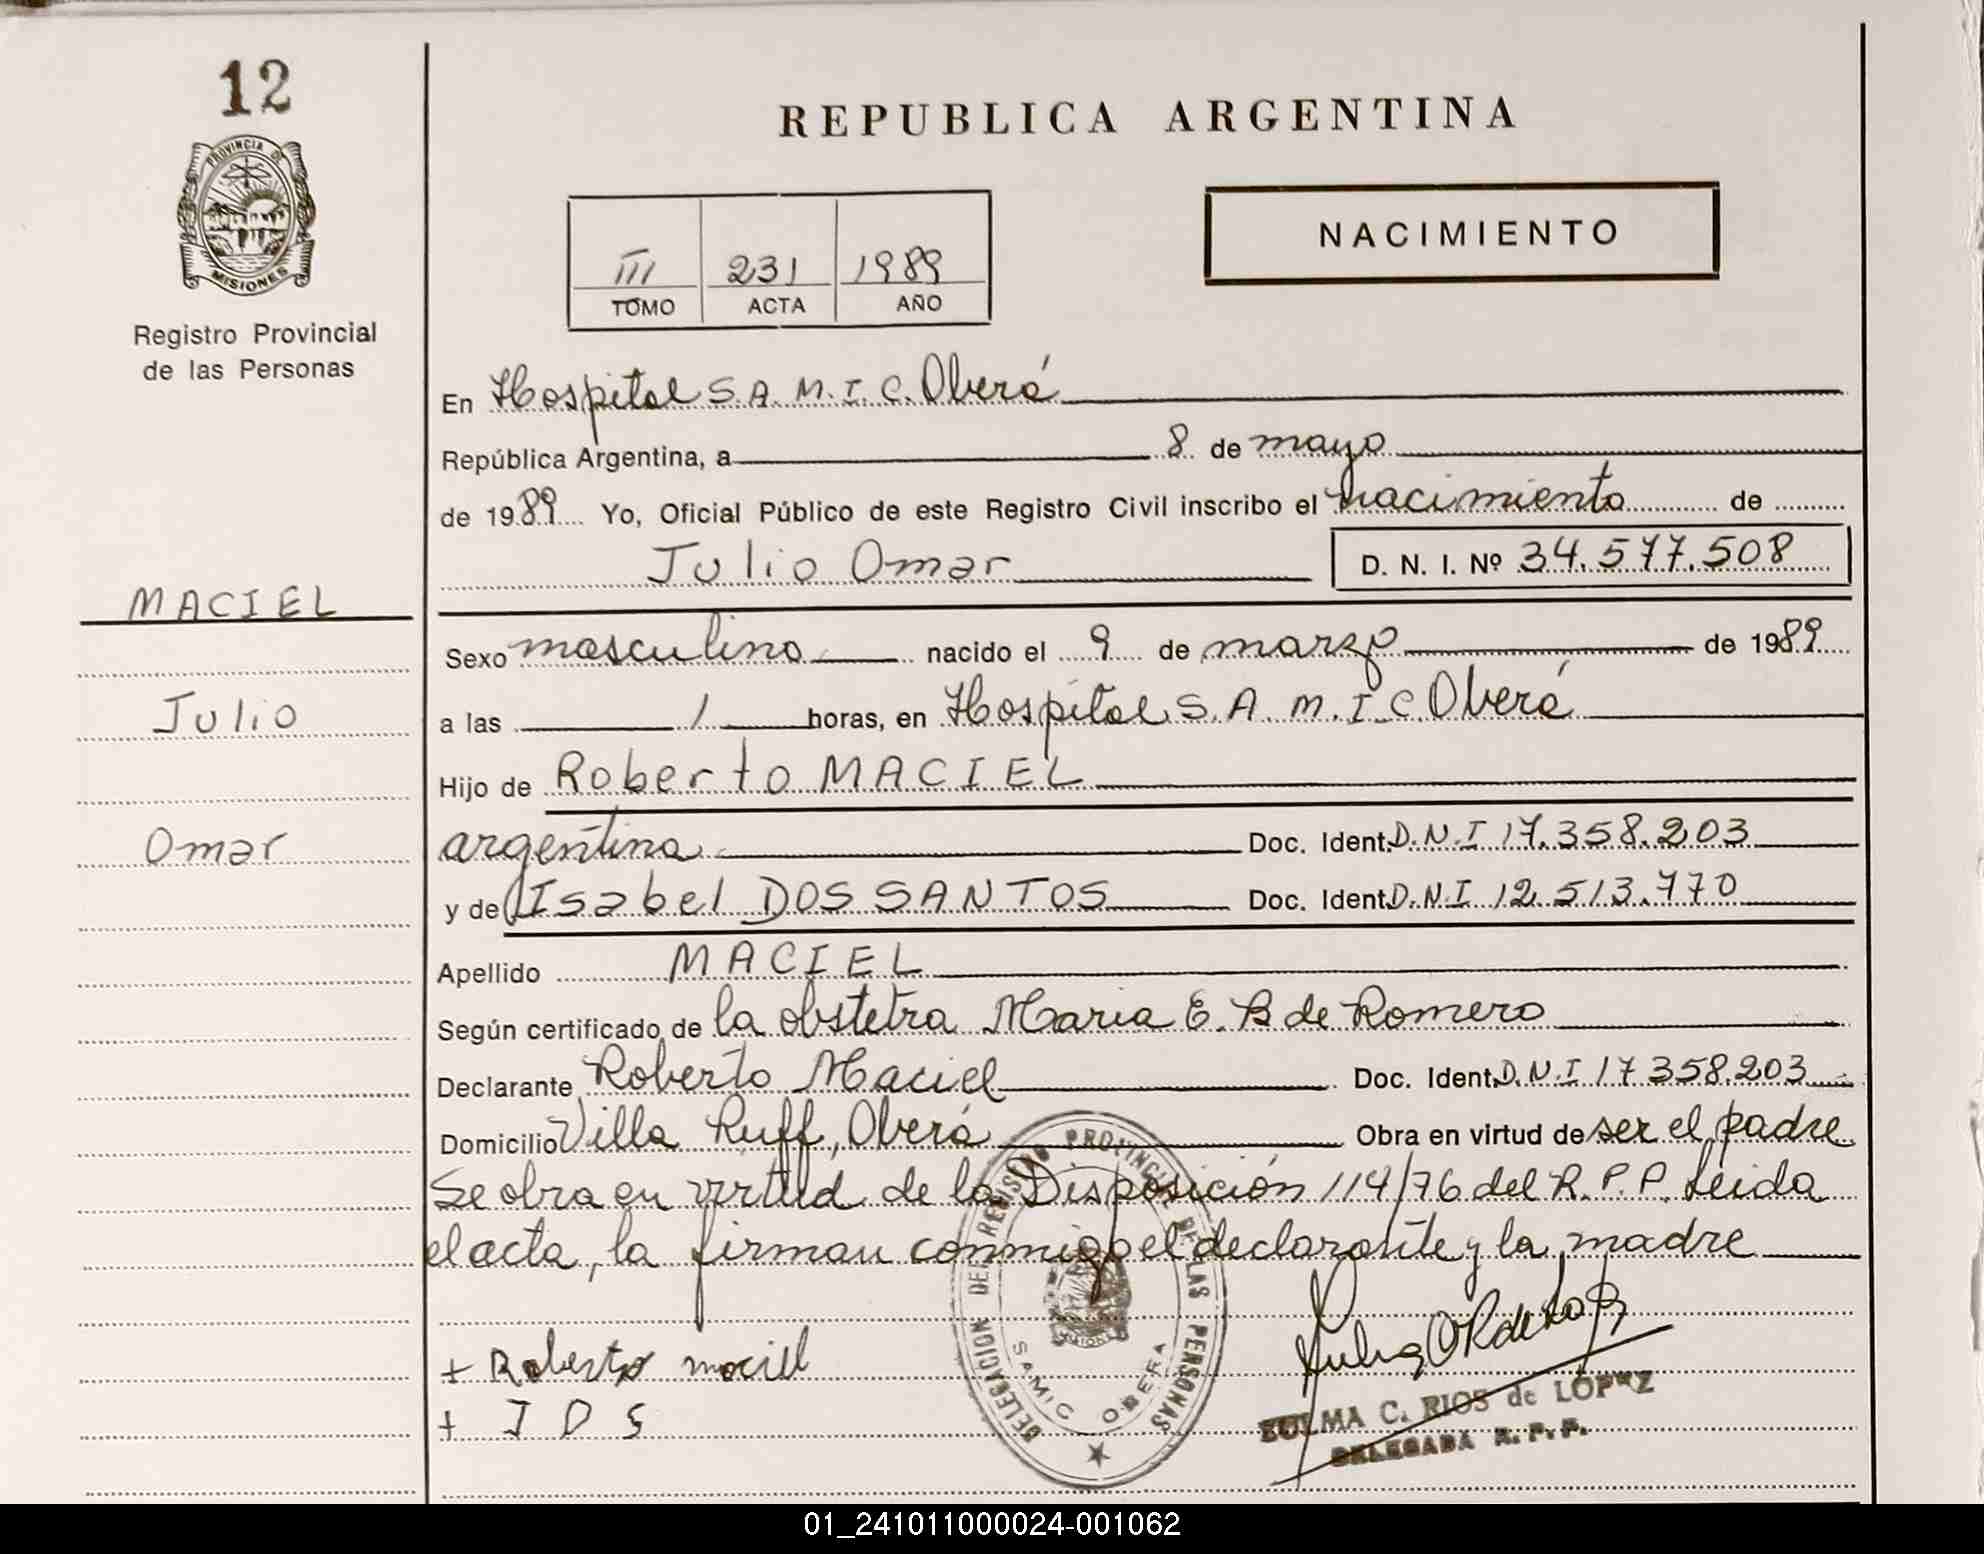 12
PROVINCIA DE
MISIONES
Registro Provincial
de las Personas
MACIEL
Julio
Omar
REPUBLICA ARGENTINA
NACIMIENTO
III 231 1989
TOMO ACTA AÑO
En Hospital S.A.M.I.C. Oberá
República Argentina, a 8 de mayo
de 1989 Yo, Oficial Público de este Registro Civil inscribo el nacimiento de
Julio Omar D. N. I. Nº 34.577.508
Sexo masculino nacido el 9 de marzo de 1989
a las 1 horas, en Hospital S.A.M.I.C Oberá
Hijo de Roberto MACIEL
argentina Doc. Ident. D.N.I 17.358.203
y de Isabel DOS SANTOS Doc. Ident. D.N.I 12.513.770
Apellido MACIEL
Según certificado de la obstetra Maria E. B de Romero
Declarante Roberto Maciel Doc. Ident. D.N.I 17 358.203
Domicilio Villa Ruff, Oberá Obra en virtud de ser el padre
Se obra en virtud de la Disposición 114/76 del R.P.P. Leida
el acta, la firman conmigo el declarante y la madre
+ Roberto maciel
+ I D S
DELEGACION DEL REGISTRO PROVINCIAL DE LAS PERSONAS
SAMIC OBERA
ZULMA C. RIOS de LÓPEZ
DELEGADA R. P. P.
01_241011000024-001062